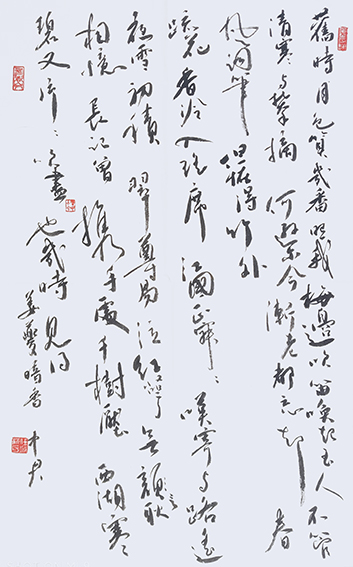 舊時月色算幾番照我梅邊吹笛喚起玉人不管
清寒與攀摘 何遜而今漸老都忘却 春
風詞筆 但怪得竹外
疏花香冷入瑤席 江國正寂〻嘆寄與路遙
夜雪初積 翠尊易泣紅萼無言耿〻
相憶 長記曾攜手處千樹壓 西湖寒
碧又片〻吹盡 也幾時見得
姜夔暗香